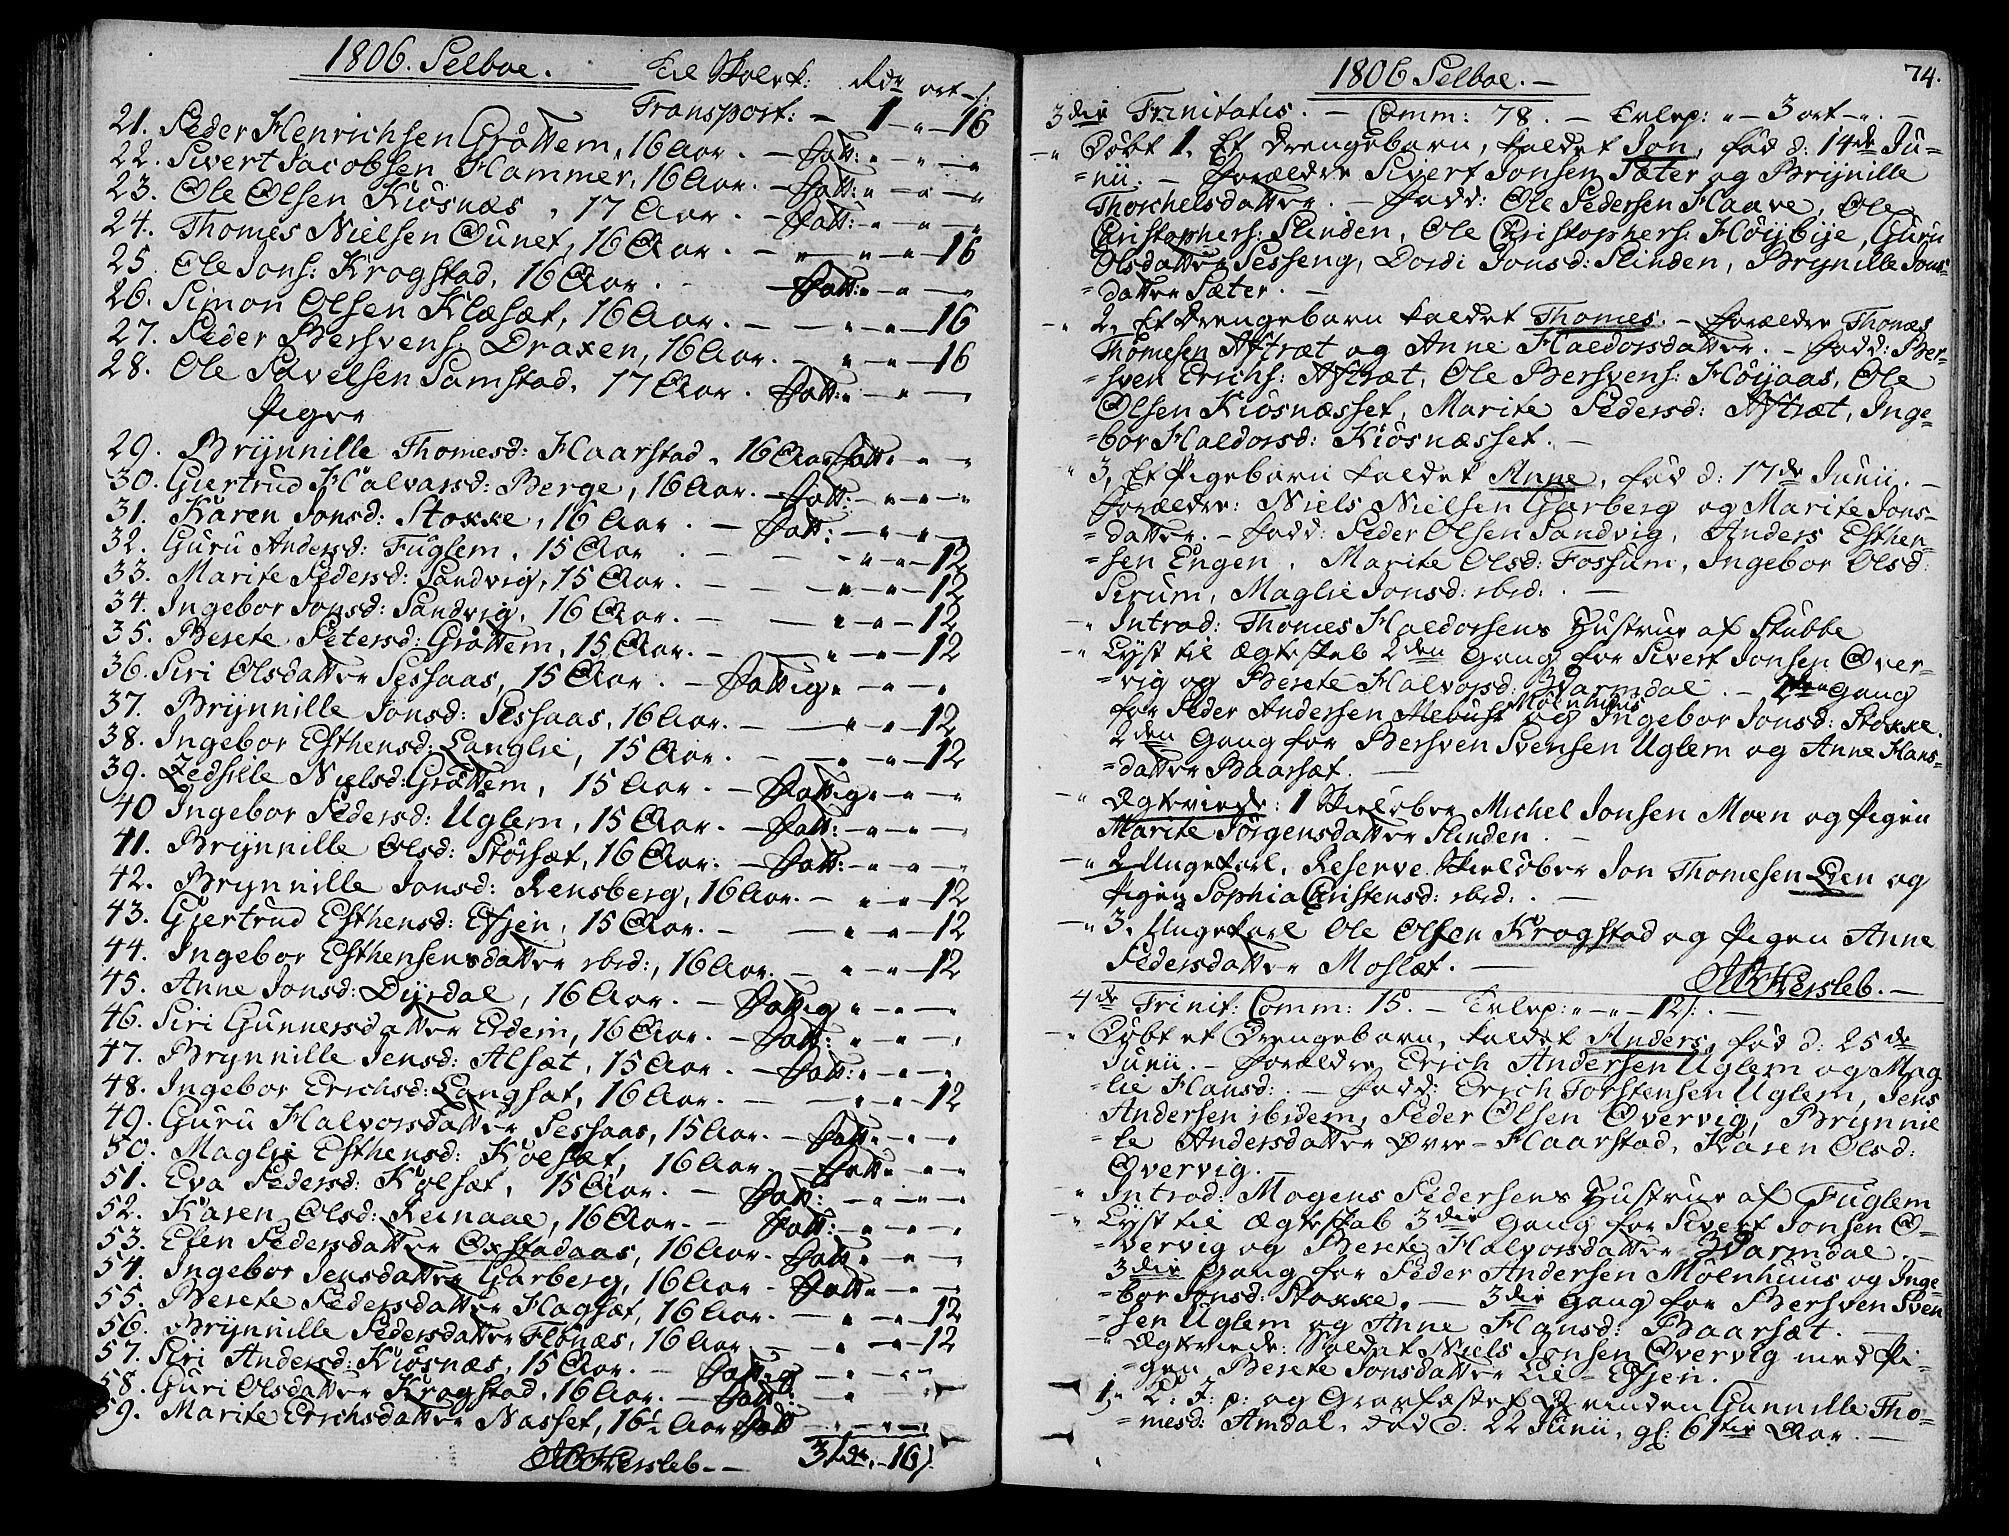 1806. Selboe. Til Skolek: Rdr ort s:
Transport: – 1 – " – 16
21. Peder Henrichsen Gråttem, 16 Aar. – fatt: " – " – "
22. Sivert Jacobsen Hammer, 16 Aar. – fatt: " – " – "
23. Ole Olsen Kiösnæs, 17 Aar. – fatt: " – " – "
24. Thomes Nielsen Ounet, 16 Aar. – " – " – 16
25. Ole Jons: Krogstad, 16 Aar. – fatt: " – " – "
26. Simon Olsen Klæsæt, 16 Aar. – " – " – 16
27. Peder Bersvens: Draxen, 16 Aar. – " – " – 16
28. Ole Pavelsen Samstad, 17 Aar. fatt: " – " – "
Piger
29. Brÿnnille Thomesd: Haarstad, 16 Aar fatt: " – " – "
30. Giertrud Halvarsd: Berge, 16 Aar. – fatt: " – " – "
31. Karen Jonsd: Stokke, 16 Aar. – fatt: – " – "
32. Guru Andersd: Fuglem, 15 Aar. – " – " – 12
33. Marite Pedersd: Sandvig, 15 Aar. – " – " – 12
34. Ingebor Jonsd: Sandvig, 16 Aar. – " – " – 12
35. Berete Petersd: Gråttem, 15 Aar. – " – " – 12
36. Siri Olsdatter Sessaas, 15 Aar. – fattig " – " – "
37. Brÿnnille Jonsd: Sessaas, 16 Aar. – " – " – 12
38. Ingebor Esthensd: Langlie, 15 Aar. – " – " – 12
39. Zedsille Nielsd: Gråttem, 15 Aar. – fattig " – " – "
40 Ingebor Pedersd: Uglem, 15 Aar. – fatt: " – " – "
41. Brÿnnille Olsd: Störsæt, 16 Aar: – fatt: " – " – "
42. Brÿnnille Jonsd: Rensberg, 16 Aar. – " – " – 12
43. Giertrud Esthensd: Efjen, 15 Aar. – " – " – 12
44. Ingebor Esthensensdatter ibid:, 16 Aar. – " – " – 12
45. Anne Jonsd: Dÿrdal, 16 Aar. – fattig " – " – "
46. Siri Gunnersdatter Erdem, 16 Aar. – fatt: " – " – "
47. Brÿnnille Jensd: Alsæt, 15 Aar. – fatt: " – " – "
48. Ingebor Erichsd: Langsat, 16 Aar. – " – " – 12
49. Guru Halvorsdatter Sessaas, 15 Aar. – fatt: " – " – "
50. Maglie Esthensd: Kölsæt, 16 Aar. – fatt: " – " – "
51. Eva Pedersd: Kölsæt, 15 Aar. – fatt: – " – "
52. Karen Olsd: Reinaae, 16 Aar. – fatt: " – " – "
53. Elen Pedersdatter Oxstadaas, 16 Aar. fatt: " – " – "
54. Ingebor Jensdatter Garberg, 16 Aar – fatt: " – " – "
55. Berete Pedersdatter Flagsæt, 16 Aar. – " – " – 12
56. Brÿnnille Pedersdatter Flönæs, 16 Aar – " – " – 12
57. Siri Andersd: Kiösnæs, 15 Aar. – fattig " – " – "
58. Guri Olsdatter Krogstad, 16 Aar. – fatt: " – "
59. Marite Erichsdatter Nasset, 16½ Aar fatt " – " – "
HHersleb. – 3 rdr. " – 16 s.
1806 Selboe. – 74.
3die Trinitatis. – Comm: 78. – Tvlp: " – 3 ort – ". –
– " Döbt 1, Et Drengebarn, kaldet Jon, föd d: 14de Ju-
=nii. – Forældre Sivert Jonsen Sæter og Brÿnille
Thorchelsdatter. – Fadd: Ole Pedersen Haave, Ole
Christophers: Slinden, Ole Christophers: Höÿbÿe, Guru
Olsdatter Sesseng, Dordi Jonsd: Slinden, Brÿnille Jons=
=datter Sæter. –
– " 2, Et Drengebarn kaldet Thomes. – Forældre Thomes
Thomesen Aftræt og Anne Haldorsdatter. – Fadd: Ber-
=sven Erichs: Aftræt, Ole Bersvens: Höÿaas, Ole
Olsen Kiösnæsset, Marite Pedersd: Aftræt, Inge-
=bor Haldorsd: Kiösnæsset. –
" 3, Et Pigebarn kaldet Anne, föd d: 17de Junii. –
Forældre: Niels Nielsen Garberg og Marite Jons-
=datter. – Fadd: Peder Olsen Sandvig, Anders Esthen-
=sen Engen, Marite Olsd: Fossum, Ingebor Olsd:
Sirum, Maglie Jonsd: ibid: –
– " Introd: Thomes Haldorsens Hustrue af Stubbe
– " Lyst til Ægteskab 2den Gang for Sivert Jonsen Över-
=vig og Berete Halvorsd: Svarmdal. – 2den Gang
for Peder Andersen Mebust Mölnhuus og Ingebor Jonsd: Stokke.
2den Gang for Bersven Svensen Uglem og Anne Hans-
=datter Baarsæt. –
– " Ægteviede: 1 Skielöber Michel Jonsen Moen og Pigen
Marite Jörgensdatter Slinden. –
– " 2 Ungekarl, Reserve Skielöber Jon Thomesen Eden og
Pigen Sophia Christensd: ibid: –
– " 3. Ungekarl Ole Olsen Krogstad og Pigen Anne
Pedersdatter Moslæt. –
HHersleb. –
4de Trinit: Comm: 15. – Tvlp: " – " – 12 s. –
– " Döbt et Drengebarn, kaldet Anders, föd d: 25de
Junii. – Forældre Erich Andersen Uglem og Mag
=lie Hansd: – Fadd: Erich Torstensen Uglem, Jens
Andersen ibidem, Peder Olsen Övervig, Brÿnnil
=le Andersdatter Övre-Haarstad, Karen Olsd:
Övervig. –
" Introd: Mogens Pedersens Hustrue af Fuglem
– " Lyst til Ægteskab 3die Gang for Sivert Jonsen Ö-
=vervig og Berete Halvorsdatter Svarmdal. –
3die Gang for Peder Andersen Mölnhuus og Inge-
=bor Jonsd: Stokke. – 3die Gang for Bersven Sven
=sen Uglem og Anne Hansd: Baarsæt. –
– " Ægteviede: Soldat Niels Jonsen Övervig med Pi-
=gen Berete Jonsdatter Lie-Efjen.
1, " L: J: p: og Gravfæstet Qvinden Gunnille Tho-
=mesd: Amdal, död d: 22 Junii, gl: 61tive Aar. –